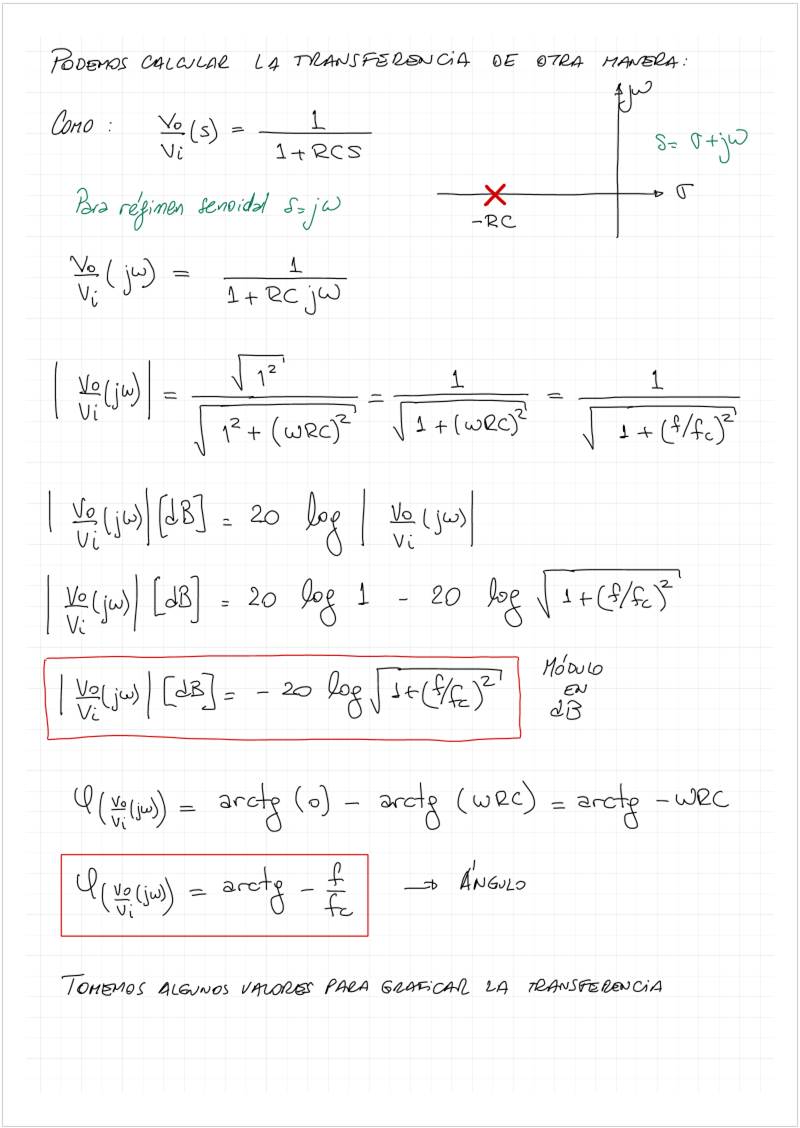 PODEMOS CALCULAR LA TRANSFERENCIA DE OTRA MANERA:
jω
COMO : Vo/Vi (s) = 1 / (1 + RCS)
s = σ + jω
σ
-RC
Para régimen senoidal s=jω
Vo/Vi (jω) = 1 / (1 + RC jω)
| Vo/Vi (jω) | = √1² / √(1² + (ωRC)²) = 1 / √(1 + (ωRC)²) = 1 / √(1 + (f/fc)²)
| Vo/Vi (jω) | [dB] = 20 log | Vo/Vi (jω) |
| Vo/Vi (jω) | [dB] = 20 log 1 - 20 log √(1+(f/fc)²)
| Vo/Vi (jω) | [dB] = - 20 log √(1+(f/fc)²)
MÓDULO
EN
dB
φ(Vo/Vi (jω)) = arctg (0) - arctg (ωRC) = arctg -ωRC
φ(Vo/Vi (jω)) = arctg - f/fc → ÁNGULO
TOMEMOS ALGUNOS VALORES PARA GRAFICAR LA TRANSFERENCIA